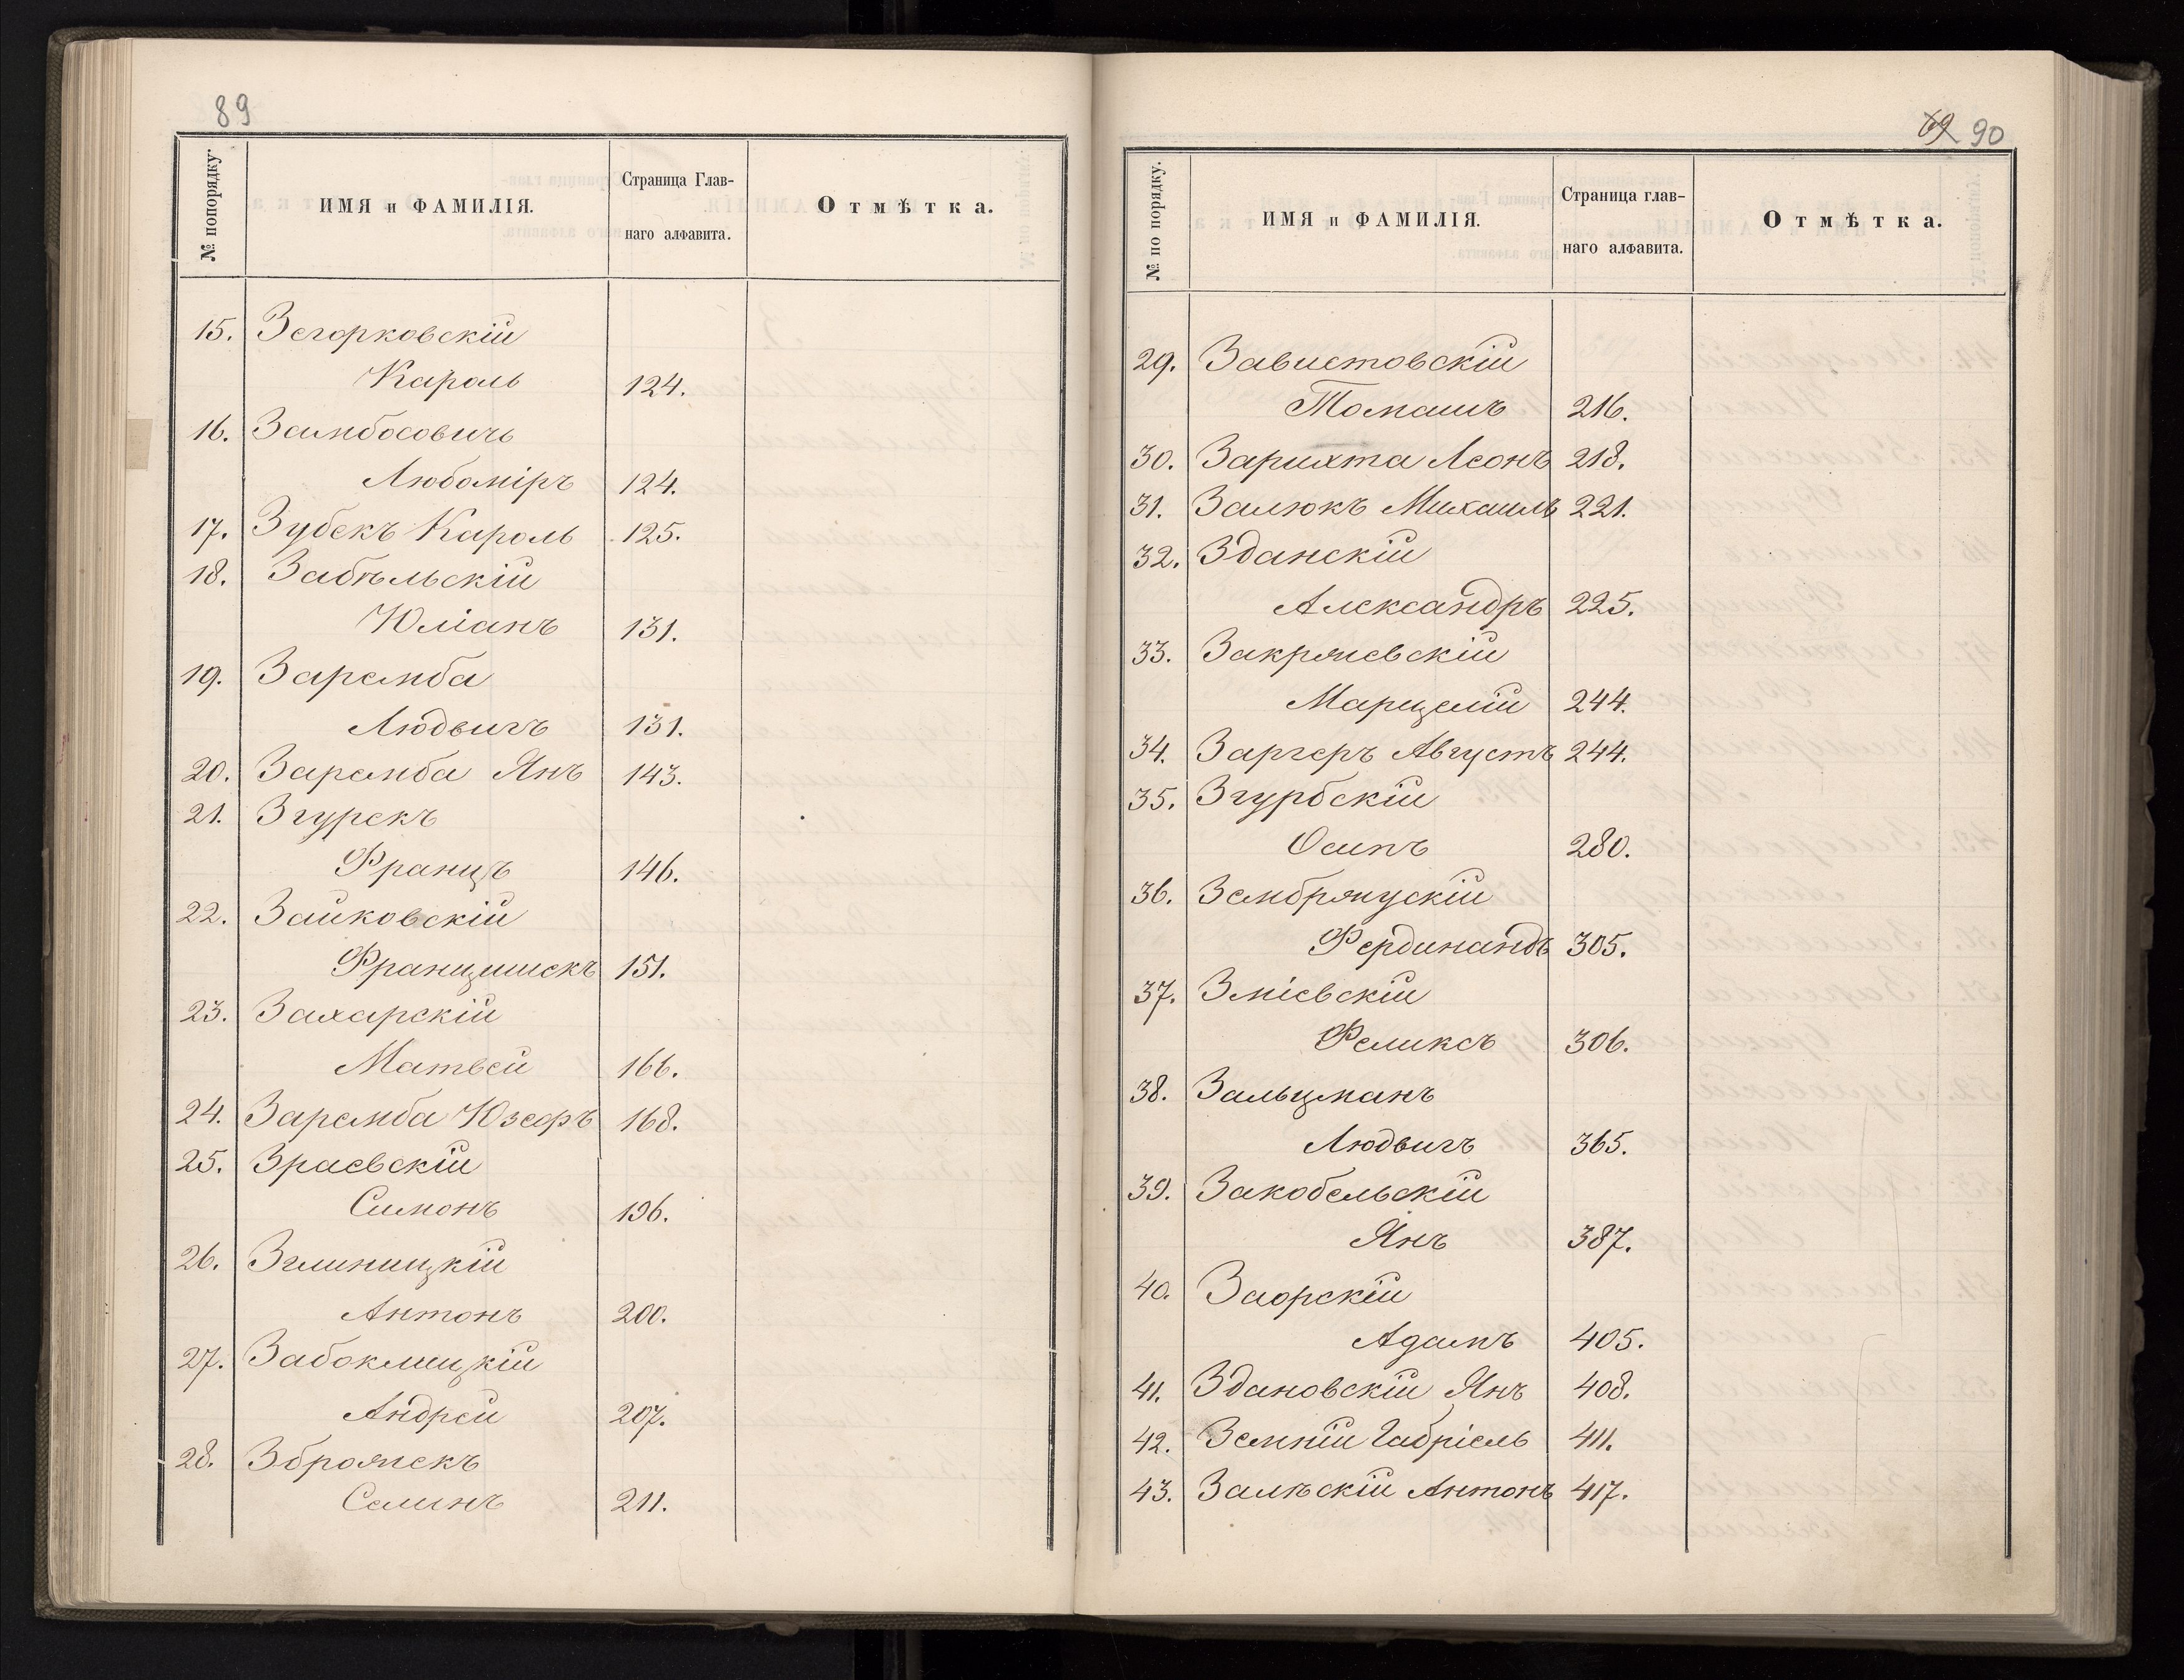 89
№ попорядку.
ИМЯ и ФАМИЛІЯ.
Страница Глав-
наго алфавита.
Отмѣтка.
15. Згорковскій
Кароль 124.
16. Замбосовичъ
Любоміръ 124.
17. Зубекъ Кароль 125.
18. Забѣльскій
Юліанъ 131.
19. Заремба
Людвигъ 131.
20. Заремба Янъ 143.
21. Згурекъ
Францъ 146.
22. Зайковскій
Францишекъ 151.
23. Захарскій
Матвей 166.
24. Заремба Юзефъ 168.
25. Враевскій
Симонъ 196.
26. Зглиницкій
Антонъ 200.
27. Забоклицкій
Андрей 207.
28. Зброжекъ
Селинъ 211.
69 90
№ по порядку.
ИМЯ и ФАМИЛІЯ.
Страница глав-
наго алфавита.
Отмѣтка.
29. Завистовскій
Томашъ 216.
30. Зарихта Леонъ 218.
31. Залюкъ Михаилъ 221.
32. Зданскій
Александръ 225.
33. Закржевскій
Марцелій 244.
34. Заргеръ Августъ 244.
35. Згурбскій
Осипъ 280.
36. Зембржускій
Фердинандъ 305.
37. Зміевскій
Феликсъ 306.
38. Зальцманъ
Людвигъ 365.
39. Закобельскій
Янъ 387.
40. Заорскій
Адамъ 405.
41. Здановскій Янъ 408.
42. Земній Габріель 411.
43. Залѣскій Антонъ 417.